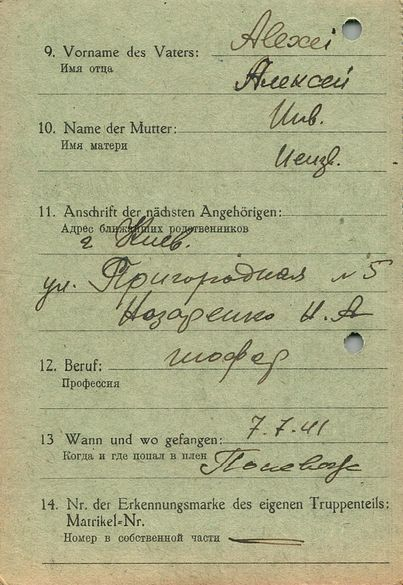 9. Vorname des Vaters: Alexei
Имя отца Алексей
10. Name der Mutter:
Имя матери
11. Anschrift der nächsten Angehörigen:
Адрес ближайших родственников
г. Киев.
ул. Пригородная № 5
Назаренко Н. А
12. Beruf: шофер
Профессия
13 Wann und wo gefangen: 7.7.41
Когда и где попал в плен
14. Nr. der Erkennungsmarke des eigenen Truppenteils:
Matrikel-Nr.
Номер в собственной части —